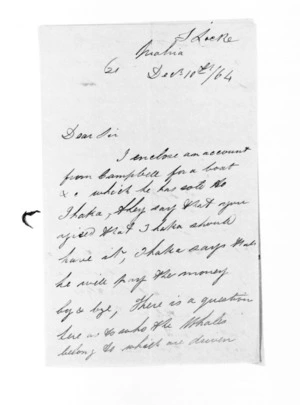 S Locke
Mahia
Decr 10th/64
Dear Sir
I enclose an account
from Campbell for a boat
&c. which he has sold to
Ihaka, they say that you
that Ihaka should
have it, Ihaka says that
he will pay the money
by & bye, There is a question
here as to who the Whales
belong to which are driven